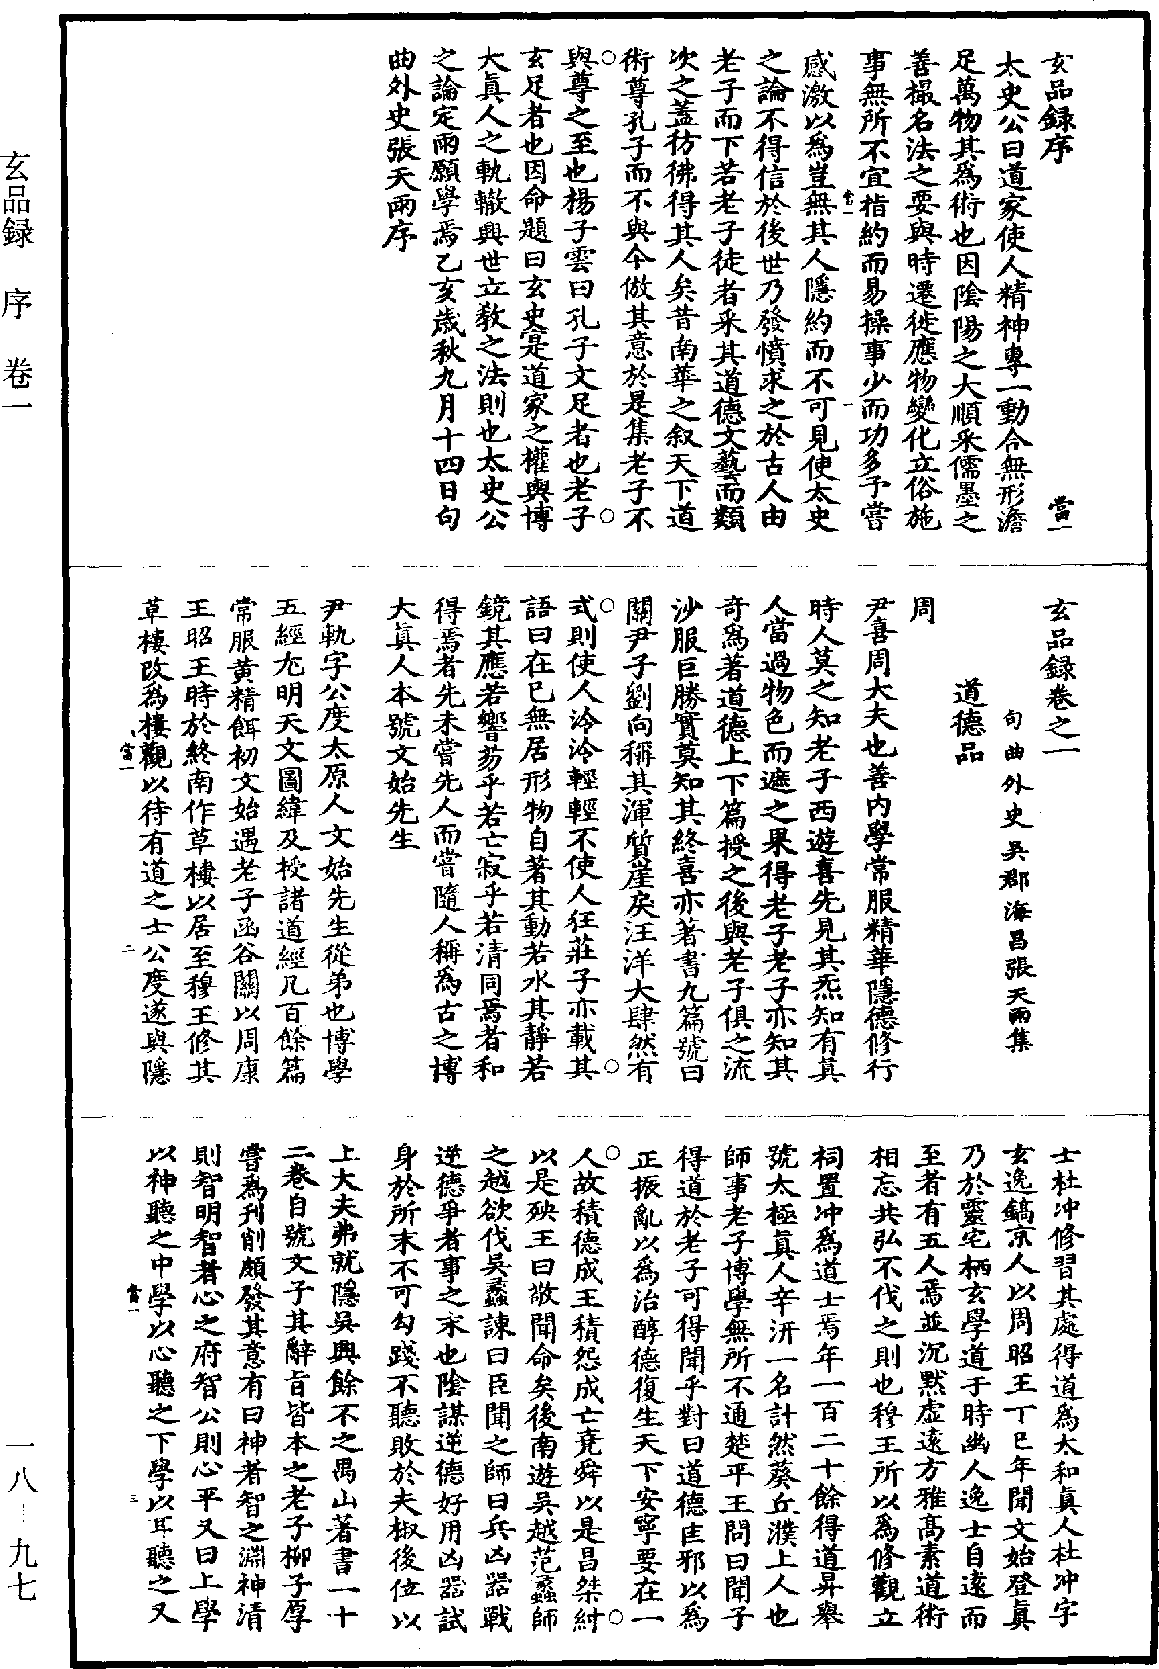 玄品録序　當一
太史公曰道家使人精神專一動合無形澹
足萬物其爲術也因陰陽之大順采儒墨之
善撮名法之要與時遷徙應物變化立俗施
事無所不宜指約而易操事少而功多予嘗
當一　一
感激以爲豈無其人隱約而不可見使太史
之論不得信於後世乃發憤求之於古人由
老子而下若老子徒者采其道德文藝而類
次之蓋彷彿得其人矣昔南華之叙天下道
術尊孔子而不與今倣其意於是集老子不
與尊之至也楊子雲曰孔子文足者也老子
玄足者也因命題曰玄史寔道家之權輿博
大眞人之軌轍與世立教之法則也太史公
之論定雨願學焉乙亥歲秋九月十四日句
曲外史張天雨序
玄品録卷之一
句曲外史吳郡海昌張天雨集
道德品
周
尹喜周大夫也善内學常服精華隱德修行
時人莫之知老子西遊喜先見其炁知有眞
人當過物色而遮之果得老子老子亦知其
奇爲著道德上下篇授之後與老子俱之流
沙服巨勝實莫知其終喜亦著書九篇號曰
關尹子劉向稱其渾質崖戾汪洋大肆然有
式則使人泠泠輕輕不使人狂莊子亦載其
語曰在已無居形物自著其動若水其靜若
鏡其應若響芴乎若亡寂乎若清同焉者和
得焉者先未嘗先人而嘗隨人稱爲古之博
大眞人本號文始先生
尹軌字公度太原人文始先生從弟也博學
五經尤明天文圖緯及授諸道經凡百餘篇
常服黄精餌初文始遇老子函谷關以周康
王昭王時於終南作草樓以居至穆王修其
草樓改爲樓觀以待有道之士公度遂與隱
當一　二
士杜冲修習其處得道爲太和眞人杜冲字
玄逸鎬京人以周昭王丁巳年聞文始登眞
乃於靈宅栖玄學道于時幽人逸士自遠而
至者有五人焉並沉默虚遠方雅高素道術
相忘共弘不伐之則也穆王所以爲修觀立
祠置冲爲道士焉年一百二十餘得道昇舉
號太極眞人辛汧一名計然葵丘濮上人也
師事老子博學無所不通楚平王問曰聞子
得道於老子可得聞乎對曰道德匡邪以爲
正振亂以爲治醇德復生天下安寧要在一
人故積德成王積怨成亡堯舜以是昌桀紂
以是殃王曰敬聞命矣後南遊吳越范蠡師
之越欲伐吳蠡諫曰臣聞之師曰兵凶器戰
逆德爭者事之末也陰謀逆德好用凶器試
身於所末不可勾踐不聽敗於夫椒後位以
上大夫弗就隱吳興餘不之禺山著書一十
二卷自號文子其辭旨皆本之老子柳子厚
嘗爲刊削頗發其意有曰神者智之淵神清
則智明智者心之府智公則心平又曰上學
以神聽之中學以心聽之下學以耳聽之又
當一　三
玄品録　序　卷一
一八—九七